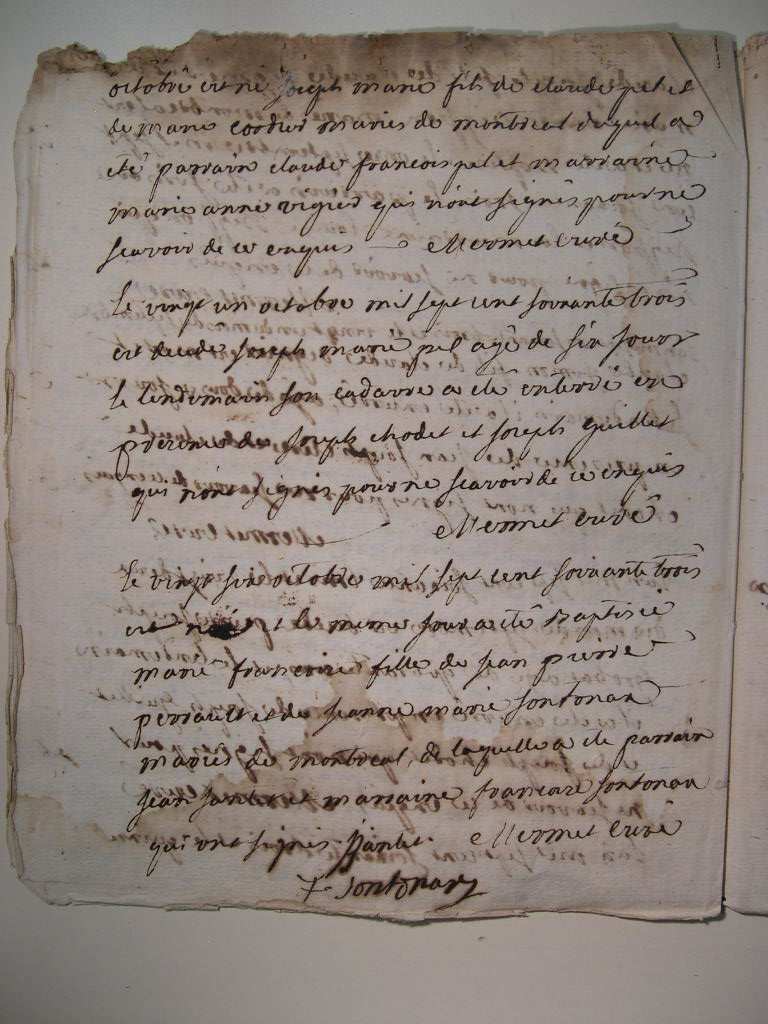 octobre est né joseph marie fils de claude pel et
de marie cordier mariés de montreal duquel a
eté parrain claude francois pel et marraine
marie anne vigier qui nont signés pour ne
scavoir de ce enquis Mermet curé
le vingt un octobre mil sept cent soixante trois
est decedé joseph marie pel agé de six jours
le lendemain son cadavre a eté enterré en
presence de joseph chodet et joseph guillet
qui nont signés pour ne scavoir de ce enquis
Mermet curé
le vingt six octobre mil sept cent soixante trois
est née et le meme jour a eté baptisée
marie francoise fille de jean pierre
perrault et de jeanne marie sontonax
mariés de montreal de laquelle a ete parrain
jean jantet et marraine francoise sontonax
qui ont signés jjantet Mermet curé
f sontonax